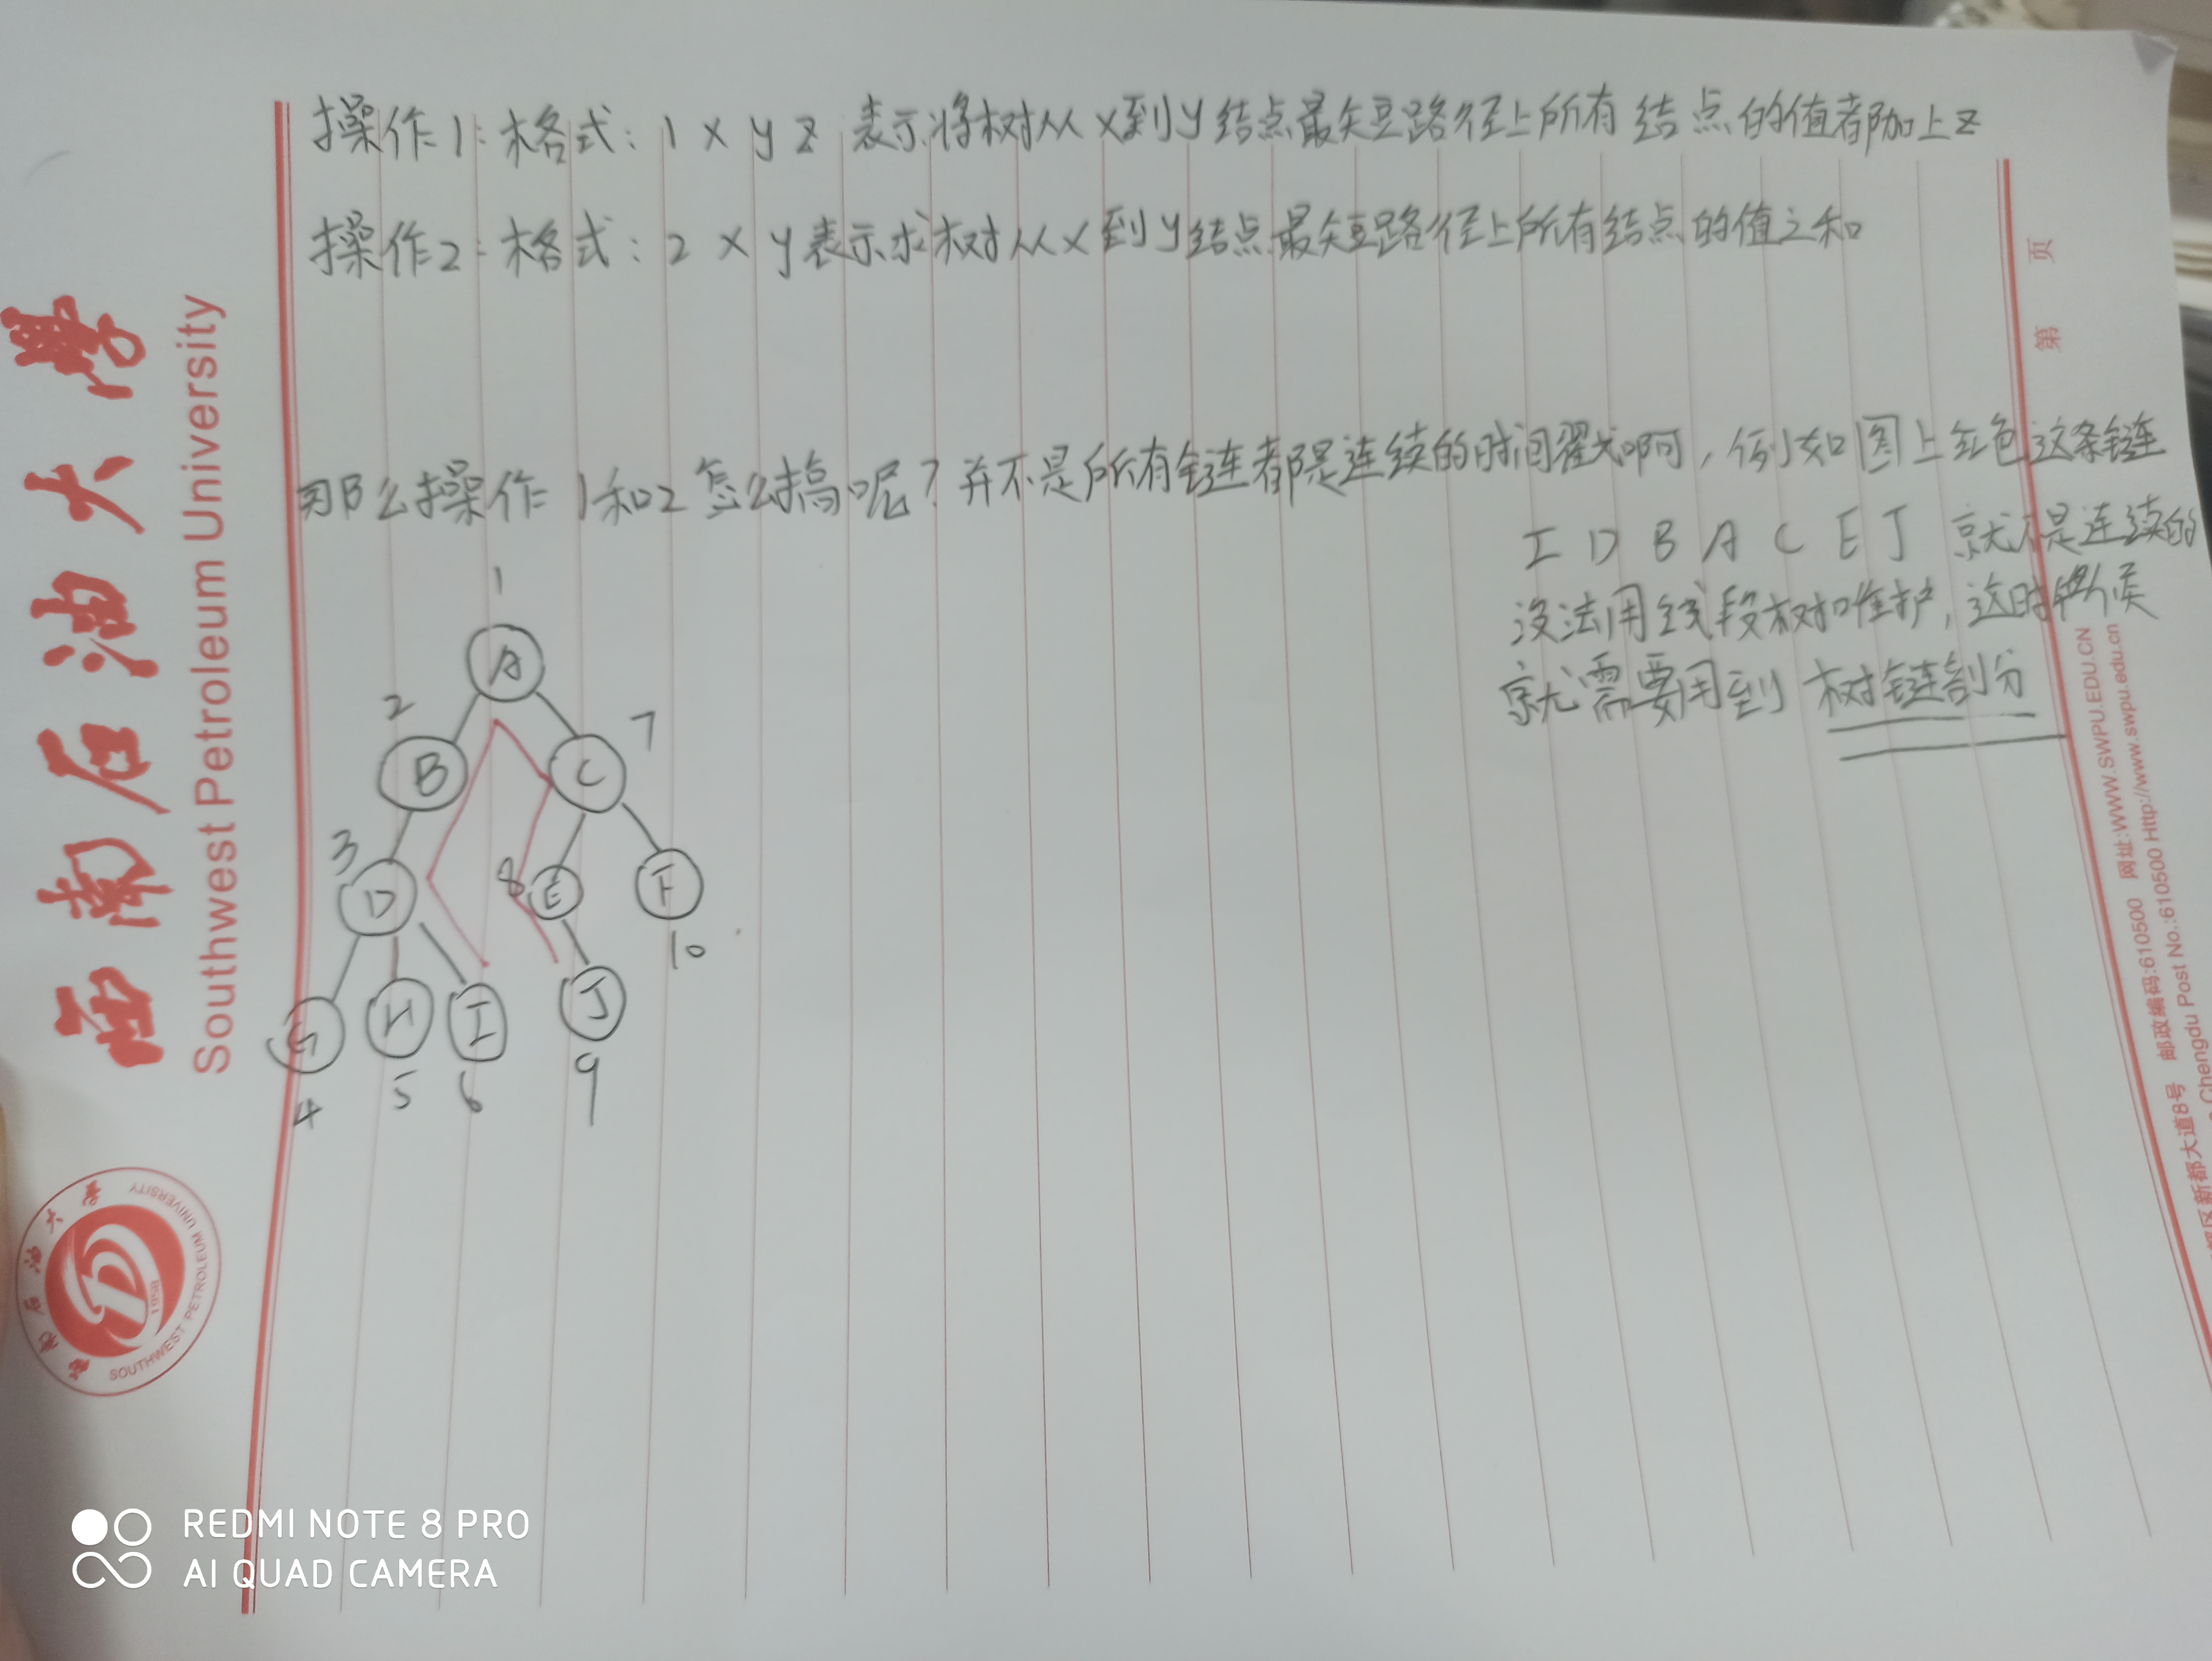 操作1：格式：1 x y z 表示将树从x到y结点最短路径上所有结点的值都加上z
操作2：格式：2 x y表示求树从x到y结点最短路径上所有结点的值之和
那么操作1和2怎么搞呢？并不是所有链都是连续的时间戳啊，例如图上红色这条链
I D B A C E J 就不是连续的
没法用线段树维护，这时候
就需要用到 树链剖分
1
A
2
B
C
7
3
D
8
E
F
10
G
H
I
J
4
5
6
9
西南石油大学
Southwest Petroleum University
西南石油大学
SOUTHWEST PETROLEUM UNIVERSITY
1958
第 页
新都大道8号 邮政编码:610500 网址:WWW.SWPU.EDU.CN
Chengdu Post No.:610500 Http://www.swpu.edu.cn
REDMI NOTE 8 PRO
AI QUAD CAMERA